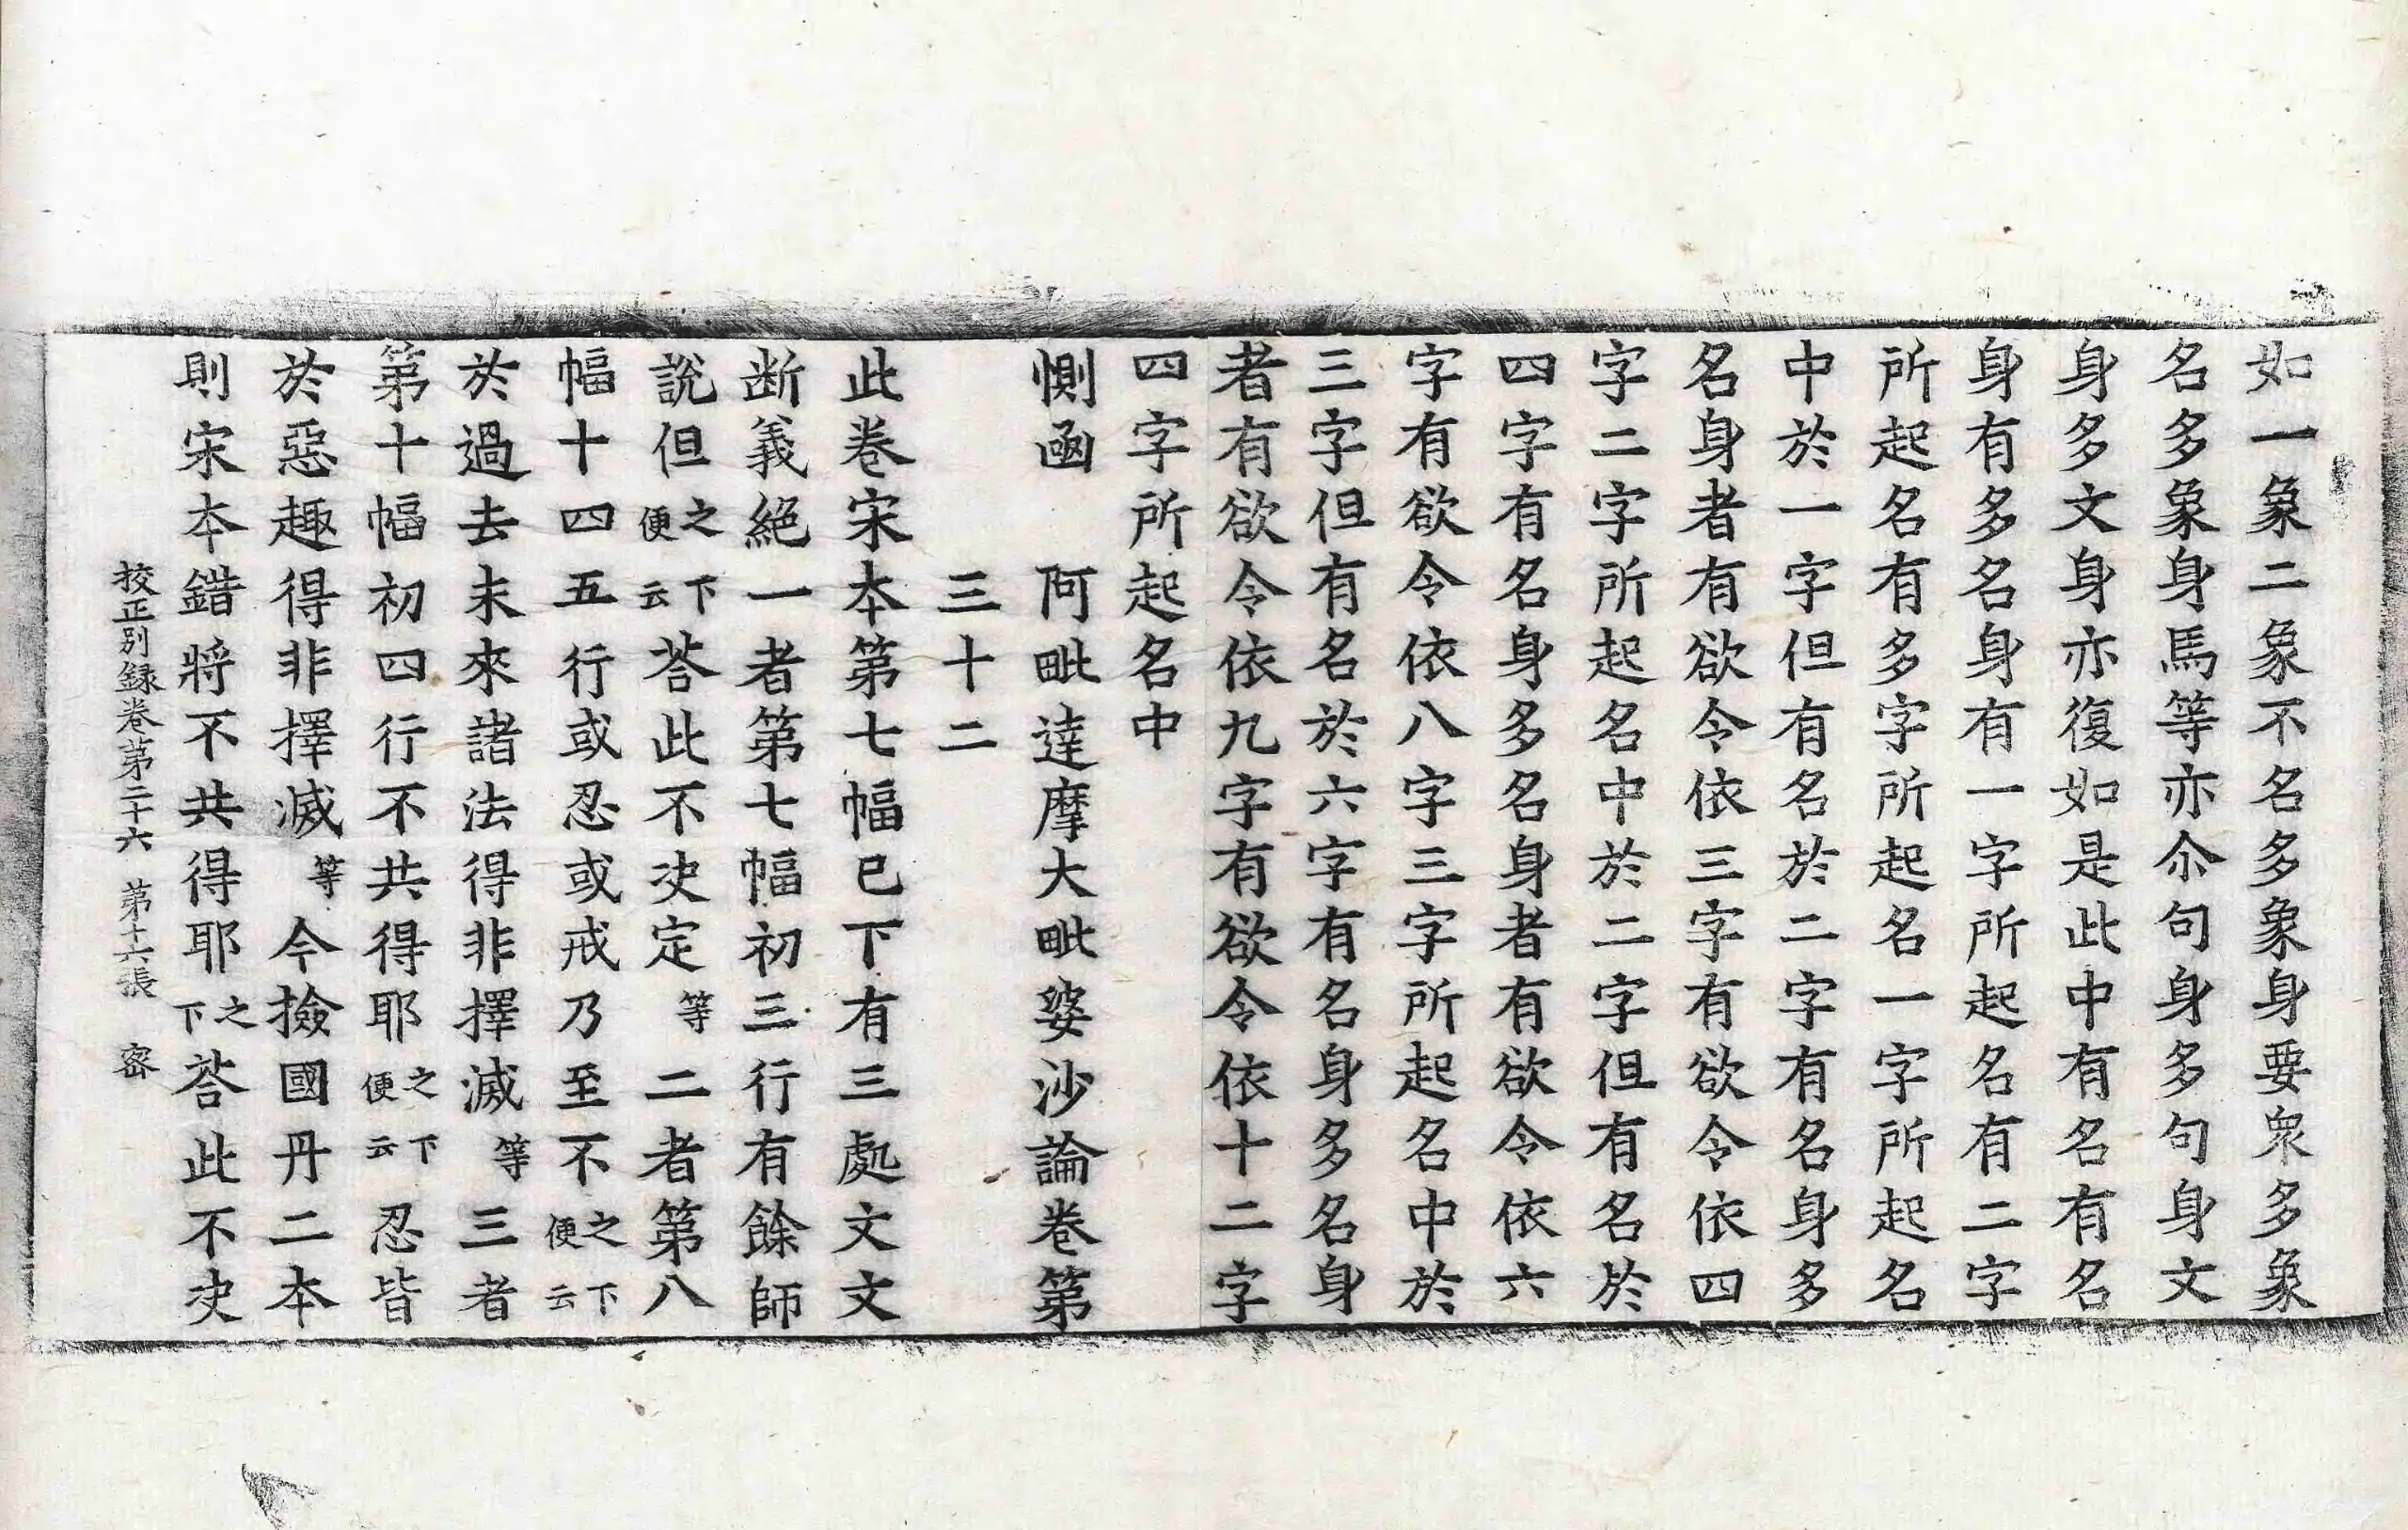 如一象二象不名多象身要衆多象
名多象身馬等亦尒句身多句身文
身多文身亦復如是此中有名有名
身有多名身有一字所起名有二字
所起名有多字所起名一字所起名
中於一字但有名於二字有名身多
名身者有欲令依三字有欲令依四
字二字所起名中於二字但有名於
四字有名身多名身者有欲令依六
字有欲令依八字三字所起名中於
三字但有名於六字有名身多名身
者有欲令依九字有欲令依十二字
四字所起名中
惻函　阿毗達摩大毗婆沙論卷第
三十二
此卷宋本第七幅已下有三處文文
断義絕一者第七幅初三行有餘師
說但之下便云荅此不决定等二者第八
幅十四五行或忍或戒乃至不之下便云
於過去未來諸法得非擇滅等三者
第十幅初四行不共得耶之下便云忍皆
於惡趣得非擇滅等今撿國丹二本
則宋本錯將不共得耶之下荅此不决
挍正別録卷第二十六　第十六張　宻